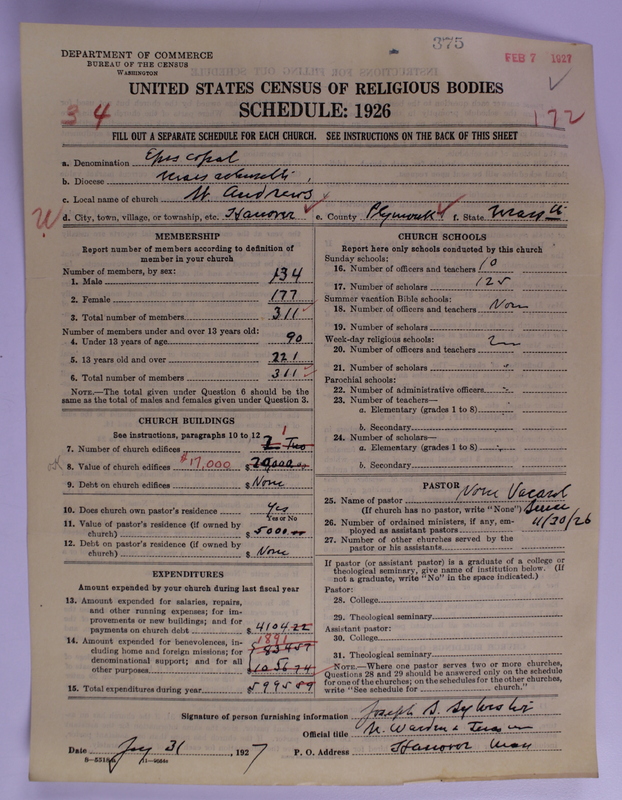 375
FEB 7 1927
DEPARTMENT OF COMMERCE
BUREAU OF THE CENSUS
WASHINGTON
UNITED STATES CENSUS OF RELIGIOUS BODIES
SCHEDULE: 1926
34
172
FILL OUT A SEPARATE SCHEDULE FOR EACH CHURCH. SEE INSTRUCTIONS ON THE BACK OF THIS SHEET
a. Denomination Episcopal
b. Diocese Massachusetts
c. Local name of church St. Andrews
d. City, town, village, or township, etc. Hanover e. County Plymouth f. State Mass
MEMBERSHIP
Report number of members according to definition of
member in your church
Number of members, by sex:
1. Male 134
2. Female 177
3. Total number of members 311
Number of members under and over 13 years old:
4. Under 13 years of age 90
5. 13 years old and over 221
6. Total number of members 311
NOTE.—The total given under Question 6 should be the
same as the total of males and females given under Question 3.
CHURCH BUILDINGS
See instructions, paragraphs 10 to 12
7. Number of church edifices 2 Two 1
8. Value of church edifices $17,000 $20,000.00
9. Debt on church edifices $ None
10. Does church own pastor's residence? Yes
Yes or No
11. Value of pastor's residence (if owned by
church) $ 5000.00
12. Debt on pastor's residence (if owned by
church) $ None
EXPENDITURES
Amount expended by your church during last fiscal year
13. Amount expended for salaries, repairs,
and other running expenses; for im-
provements or new buildings; and for
payments on church debt $ 4104 22
14. Amount expended for benevolences, in-
cluding home and foreign missions; for
denominational support; and for all
other purposes
1891
834 57
$ 1056 74
15. Total expenditures during year $ 5995 89
CHURCH SCHOOLS
Report here only schools conducted by this church
Sunday schools:
16. Number of officers and teachers 10
17. Number of scholars 125
Summer vacation Bible schools:
18. Number of officers and teachers None
19. Number of scholars
Week-day religious schools:
20. Number of officers and teachers
21. Number of scholars "
Parochial schools:
22. Number of administrative officers "
23. Number of teachers—
a. Elementary (grades 1 to 8)
b. Secondary
24. Number of scholars—
a. Elementary (grades 1 to 8)
b. Secondary
PASTOR
25. Name of pastor None Vacant
(If church has no pastor, write "None") Since
11/30/26
26. Number of ordained ministers, if any, em-
ployed as assistant pastors
27. Number of other churches served by the
pastor or his assistants
If pastor (or assistant pastor) is a graduate of a college or
theological seminary, give name of institution below. (If
not a graduate, write "No" in the space indicated.)
Pastor:
28. College
29. Theological seminary
Assistant pastor:
30. College
31. Theological seminary
NOTE.—Where one pastor serves two or more churches,
Questions 28 and 29 should be answered only on the schedule
for one of the churches; on the schedules for the other churches,
write "See schedule for church."
Signature of person furnishing information Joseph S. Sylvester
Official title Warden & Treasurer
Date Jany 31, 1927 P. O. Address Hanover Mass
8-5518a